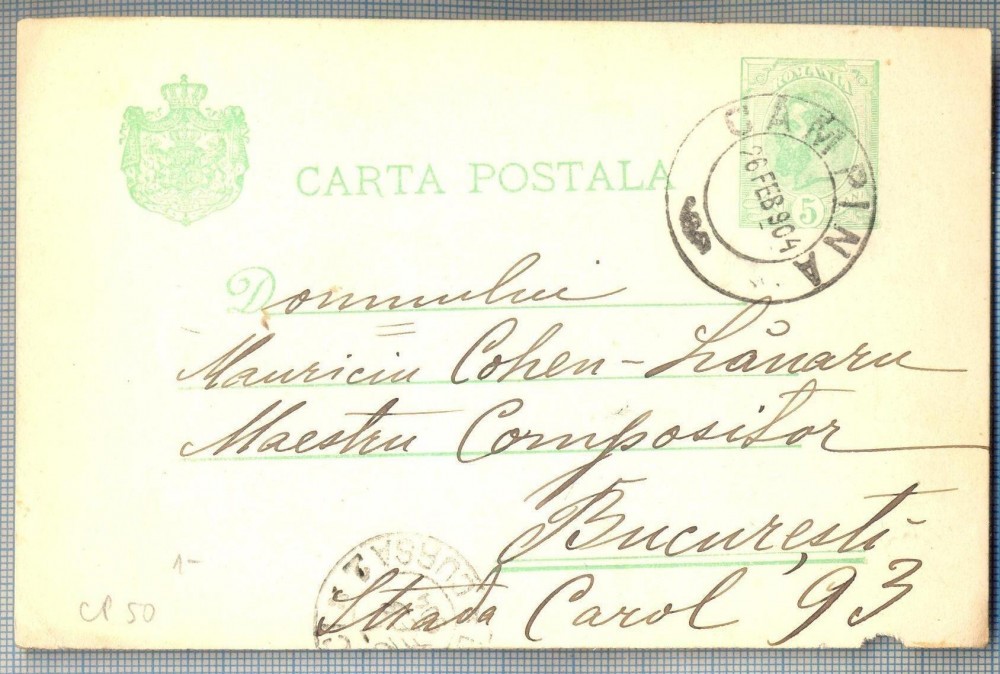 CARTA POSTALA
ROMANIA
5
CAMPINA
26 FEB 904
Domnului
Mauriciu Cohen-Lânaru
Maestru Compositor
București
Strada Carol 93
CURSA 2
1-
CP 50